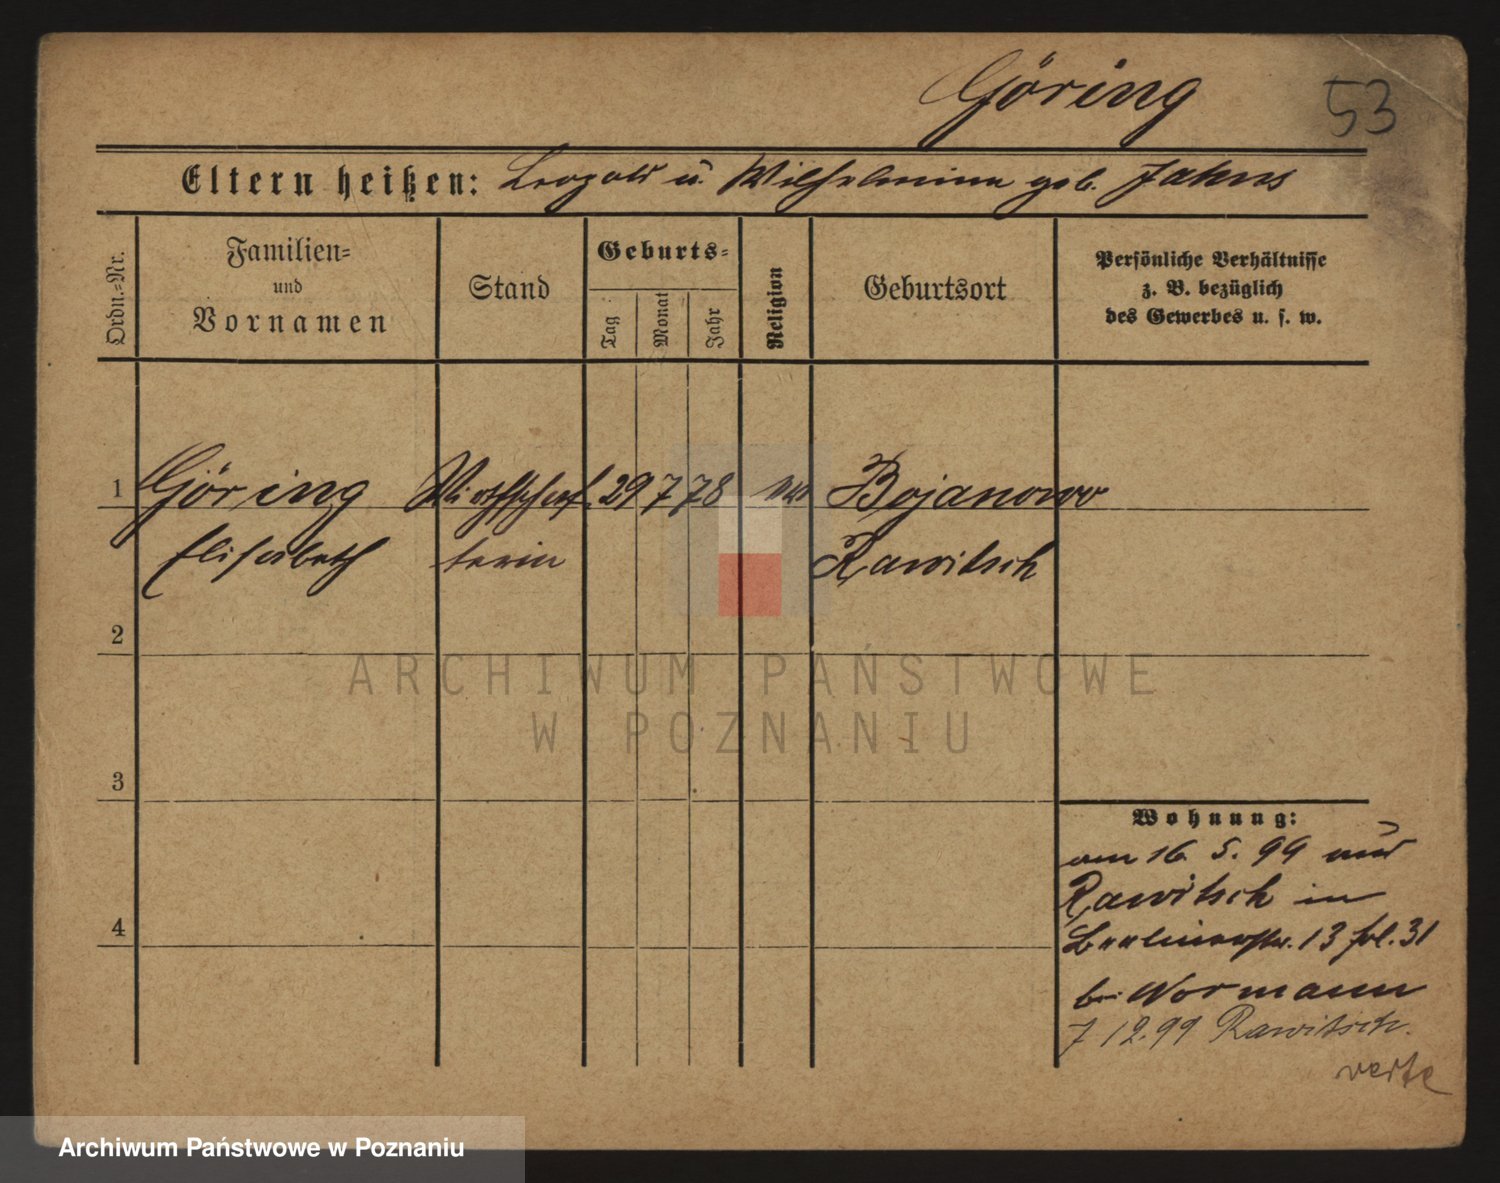 Göring
53
Eltern heißen: Leopold u. Wilhelmine geb. Jahns
Ordn.-Nr.
Familien-
und
Vornamen
Stand
Geburts-
Tag
Monat
Jahr
Religion
Geburtsort
Persönliche Verhältnisse
z. B. bezüglich
des Gewerbes u. s. w.
1 Göring Wirthschaf 29 7 78 Bojanowo
Elisabeth terin Rawitsch
2
ARCHIWUM PAŃSTWOWE
W POZNANIU
3
Wohnung:
am 16. 5. 99 aus
Rawitsch in
Berlinerstr. 13 fol. 31
4
bei Normann
7 12.99 Rawitsch.
verte
Archiwum Państwowe w Poznaniu